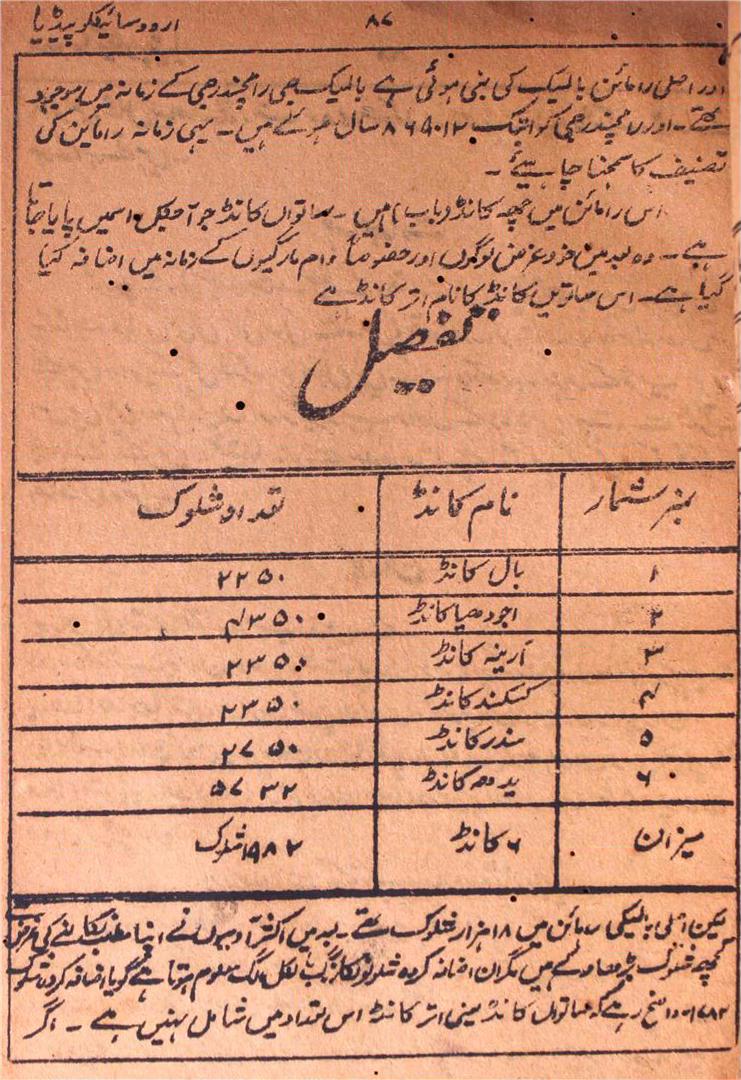 اردو سائیکلو پیڈیا
۸۷
اور اصلی رامائن بالمیک کی بنی ہوئی ہے بالمیک جی رامچندر جی کے زمانہ میں موجود
تھے۔ اور رامچندر جی کو ابتک سال ہوئے ہیں۔ یہی زمانہ رامائن کی
تصنیف کا سمجنا چاہیئے۔
اس رامائن میں چھہ کانڈ (باب) ہیں۔ ساتواں کانڈ جو آجکل اسمیں پایا جاتا
ہے۔ وہ بعد میں خود غرض لوگوں اور خصوصاً وام مارگیوں کے زمانہ میں اضافہ کیا
گیا ہے۔ اس ساتویں کانڈ کا نام اتر کانڈ ہے
تفصیل
نمبر شمار نام کانڈ تعداد شلوک
۱ بال کانڈ ۲۲۵۰
۲ اجودھیا کانڈ ۴۳۵۰
۳ آرینہ کانڈ ۲۳۵۰
۴ کسکند کانڈ ۲۳۵۰
۵ سندر کانڈ ۲۷۵۰
۶ یدھ کانڈ ۵۷۳۲
میزان ۶ کانڈ ۱۹۸۲ شلوک
لیکن اصلی بالمیکی رمائن میں ۱۸ ہزار شلوک تھے۔ بعد میں اکثر آدمیوں نے اپنا مطلب نکالنے کی غرض
کچھ شلوک بڑھا دئے ہیں مگر ان اضافہ کردہ شلوکوں کا رنگ بالکل الگ معلوم ہوتا ہے گویا اضافہ کردہ شلوک
۱۷۸۲۔ واضح رہے کہ ساتواں کانڈ یعنی اتر کانڈ اس تعداد میں شامل نہیں ہے۔ اگر